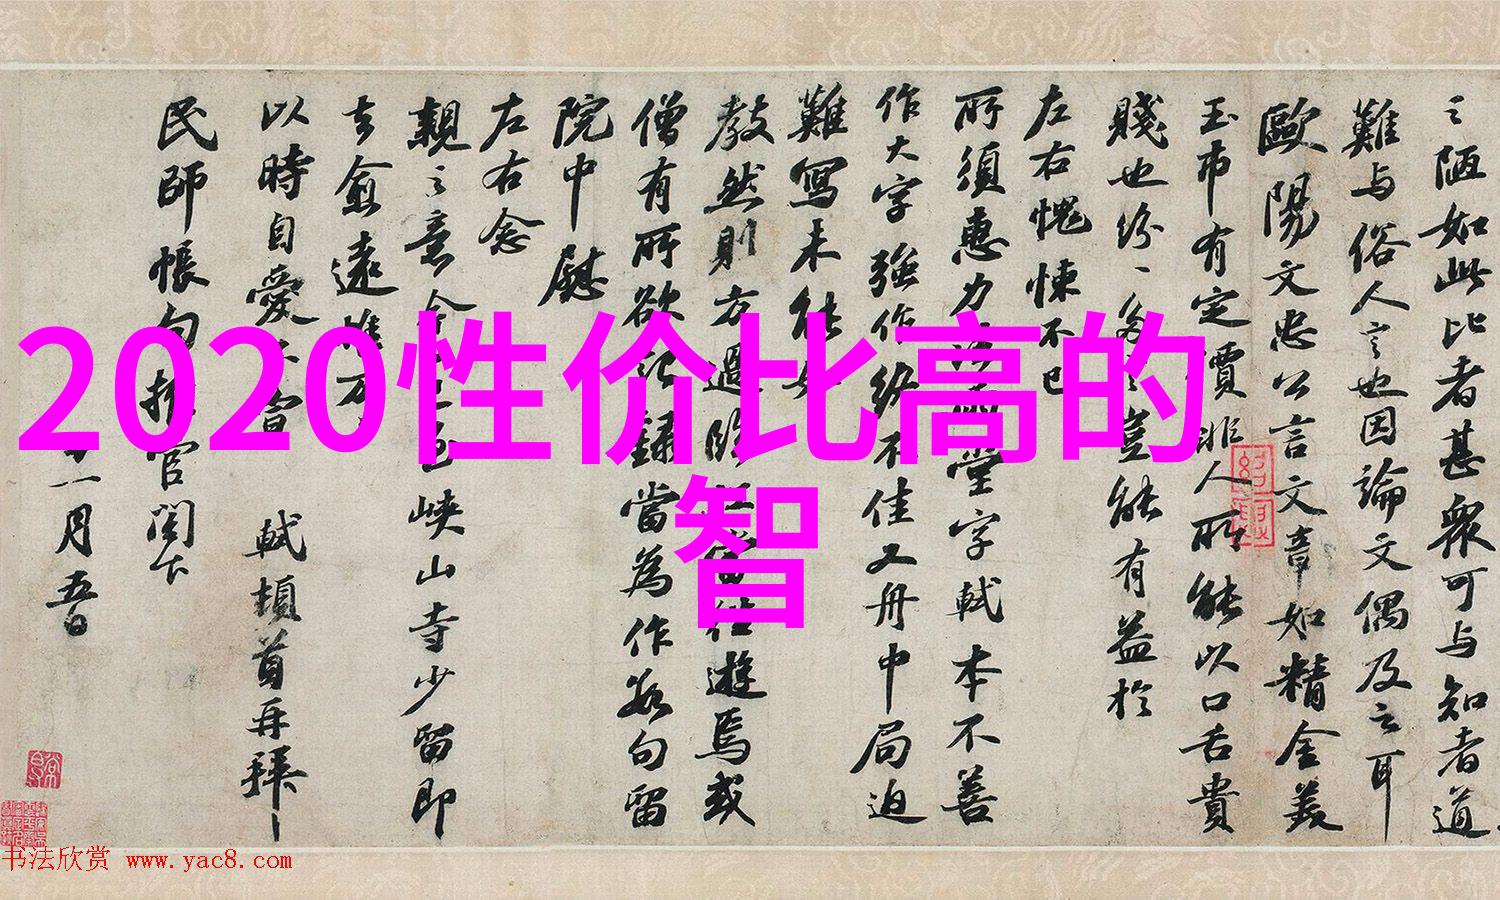 之陋如此比者甚衆可与知者道
難与俗人言也因論文偶及之耳
歐陽文忠公言文章如精金美
玉市有定價非人所能以口舌貴
賤也紛〻多言豈能有益於
左右愧悚不已
所須惠力法雨堂字軾本不善
作大字強作終不佳又舟中局迫
難寫未能如
教然則方過臨江當往遊焉或
僧有所欲記錄當為作數句留
院中慰
左右念
親之意今日至峽山寺少留即
去愈遠惟万
以時自愛不宣 軾頓首再拜
民師帳句推官閣下
十一月五日
2020性价比高的
智
书法欣赏 www.yac8.com